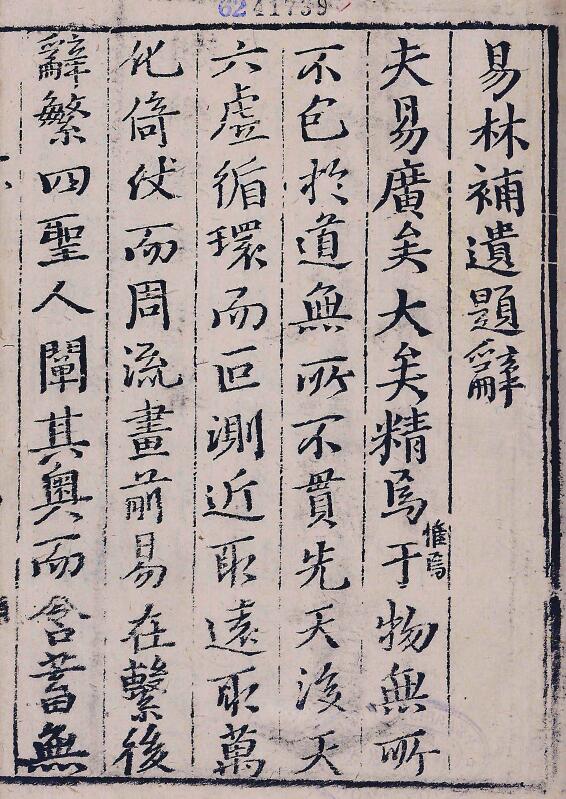 6241739
易林補遺題辭
夫易廣矣大矣精焉惟焉于物無所
不包於道無所不貫先天後天
六虛循環而叵測近取遠取萬
化倚伏而周流畫前易在繫後
辭繁四聖人闡其奧而含蓄無